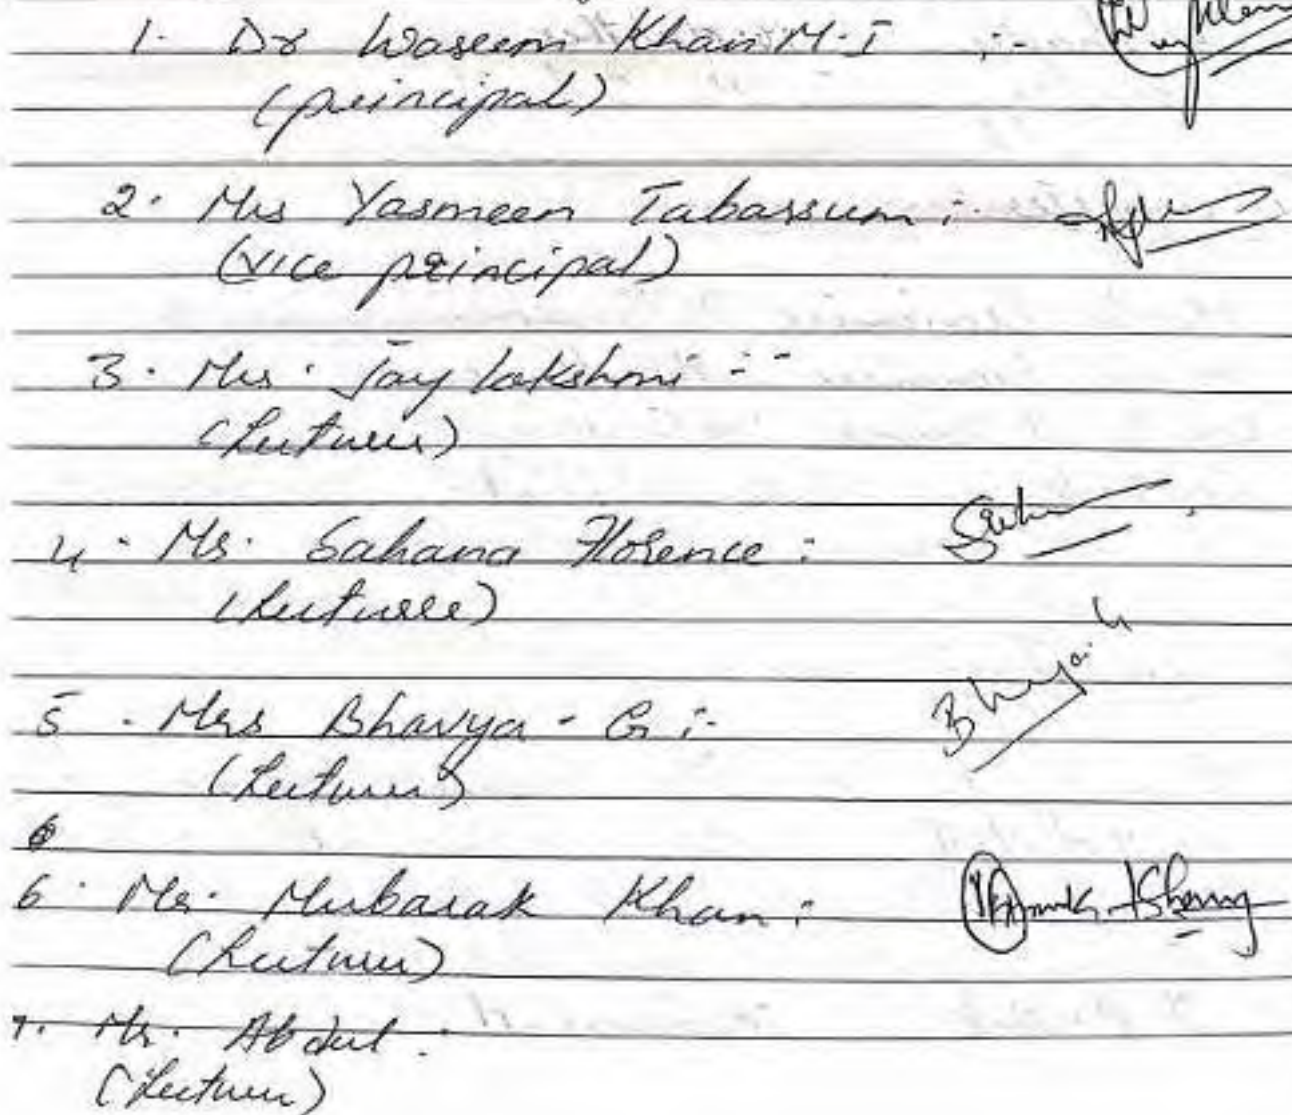 1. Dr Waseem Khan M.I :-
(principal)
2. Mrs Yasmeen Tabassum :-
(vice principal)
3. Mrs. Jay lakshmi :-
(Lecturer)
4. Ms. Sahana Florence :
(Lecturer)
5. Mrs Bhavya - G :-
Bhavya. G
(Lecturer)
6
6. Mr. Mubarak Khan :
(Lecturer)
7. Mr. Abdul :
(Lecturer)